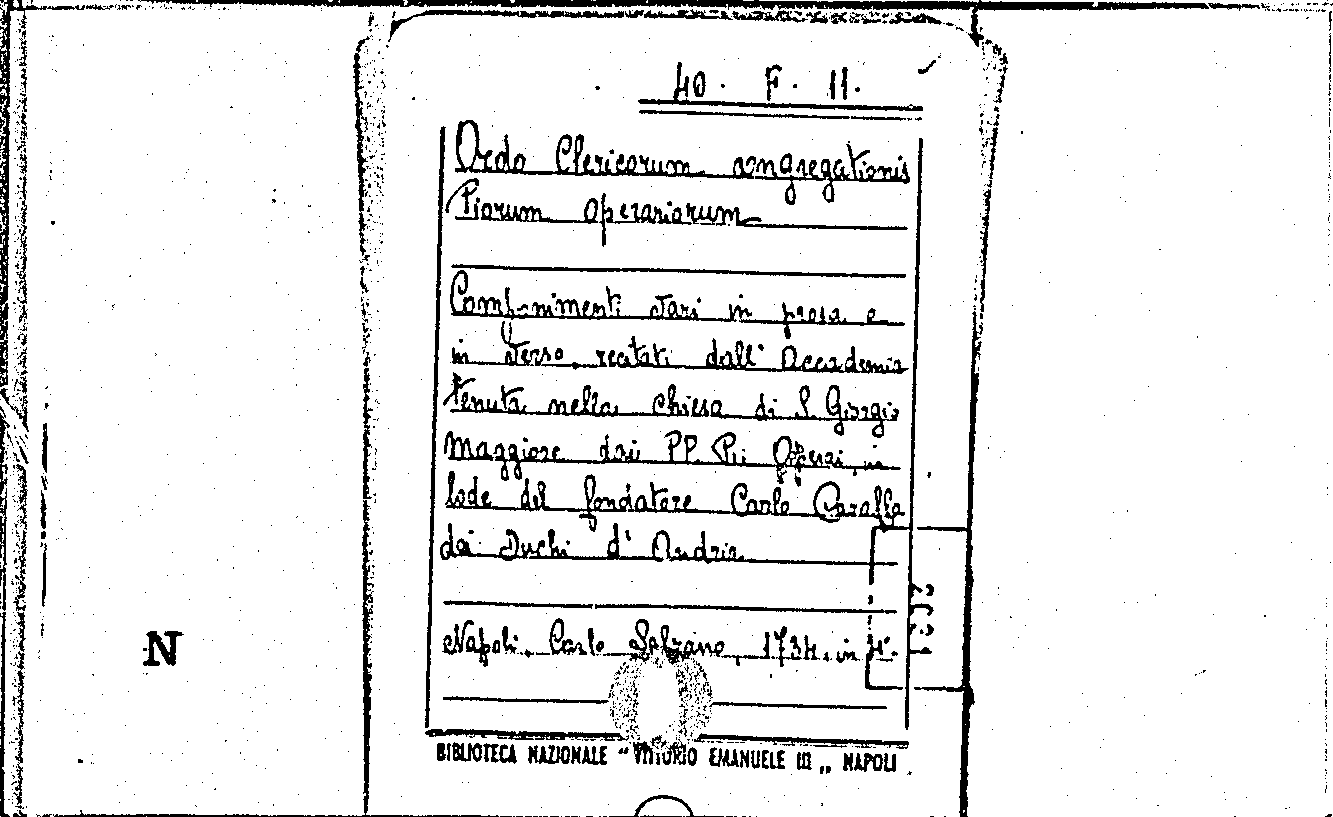 40. F. 11.
Ordo Clericorum congregationis
Piorum operariorum
Componimenti vari in prosa e
in verso recitati dall' Accademia
tenuta nella chiesa di S. Giorgio
maggiore dai PP. Pii Operai, in
lode del fondatore Carlo Caraffa
dei Duchi d' Andria
Napoli. Carlo Salzano, 1734. in 4°.
N
BIBLIOTECA NAZIONALE "VITTORIO EMANUELE III„ NAPOLI